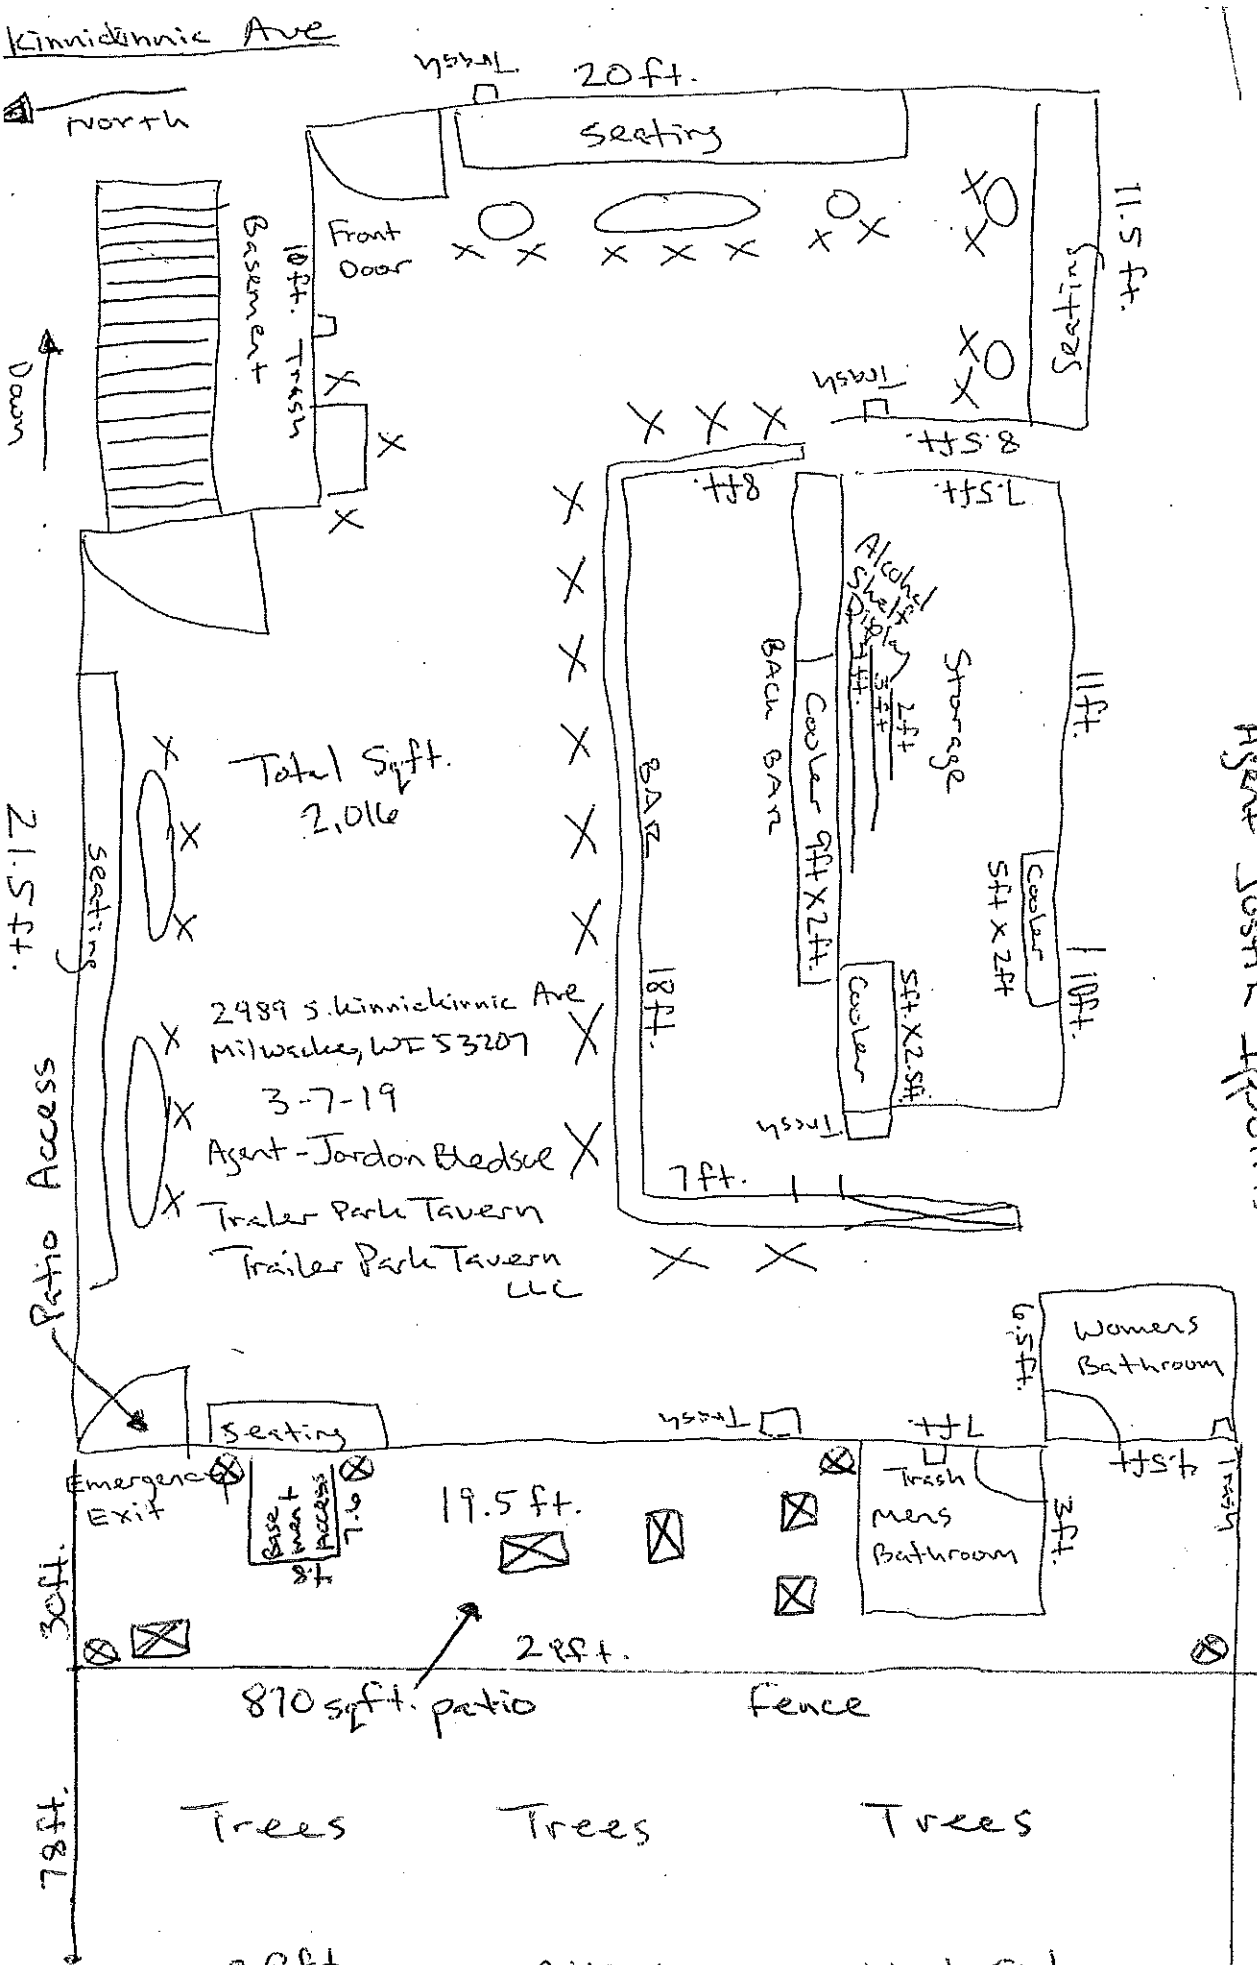 Kinnickinnic Ave
North
Trash
20ft.
seating
11.5 ft.
Seating
Front
Door
Basement
10ft.
Trash
Down
Trash
8.5ft.
8ft.
7.5ft.
Alcohol
Shelf
Display
7ft.
3ft
2ft
Storage
11ft.
BACK BAR
Cooler 9ft X 2ft.
BAR
18ft.
Cooler
5ft X 2ft
10ft.
Cooler
5ft. X 2.5ft.
Trash
7ft.
Total Sqft.
2,016
seating
21.5 ft.
2989 S. Kinnickinnic Ave
Milwaukee, WI 53207
3-7-19
Agent - Jordon Bledsoe
Trailer Park Tavern
Trailer Park Tavern
LLC
Agent
Patio Access
6.5ft.
Womens
Bathroom
seating
Trash
7ft.
4.5ft
Trash
Emergency
Exit
Base
ment
Access
7.6
8ft
19.5 ft.
Trash
Mens
Bathroom
3ft.
30ft.
29ft.
870 sqft. patio
Fence
78ft.
Trees
Trees
Trees